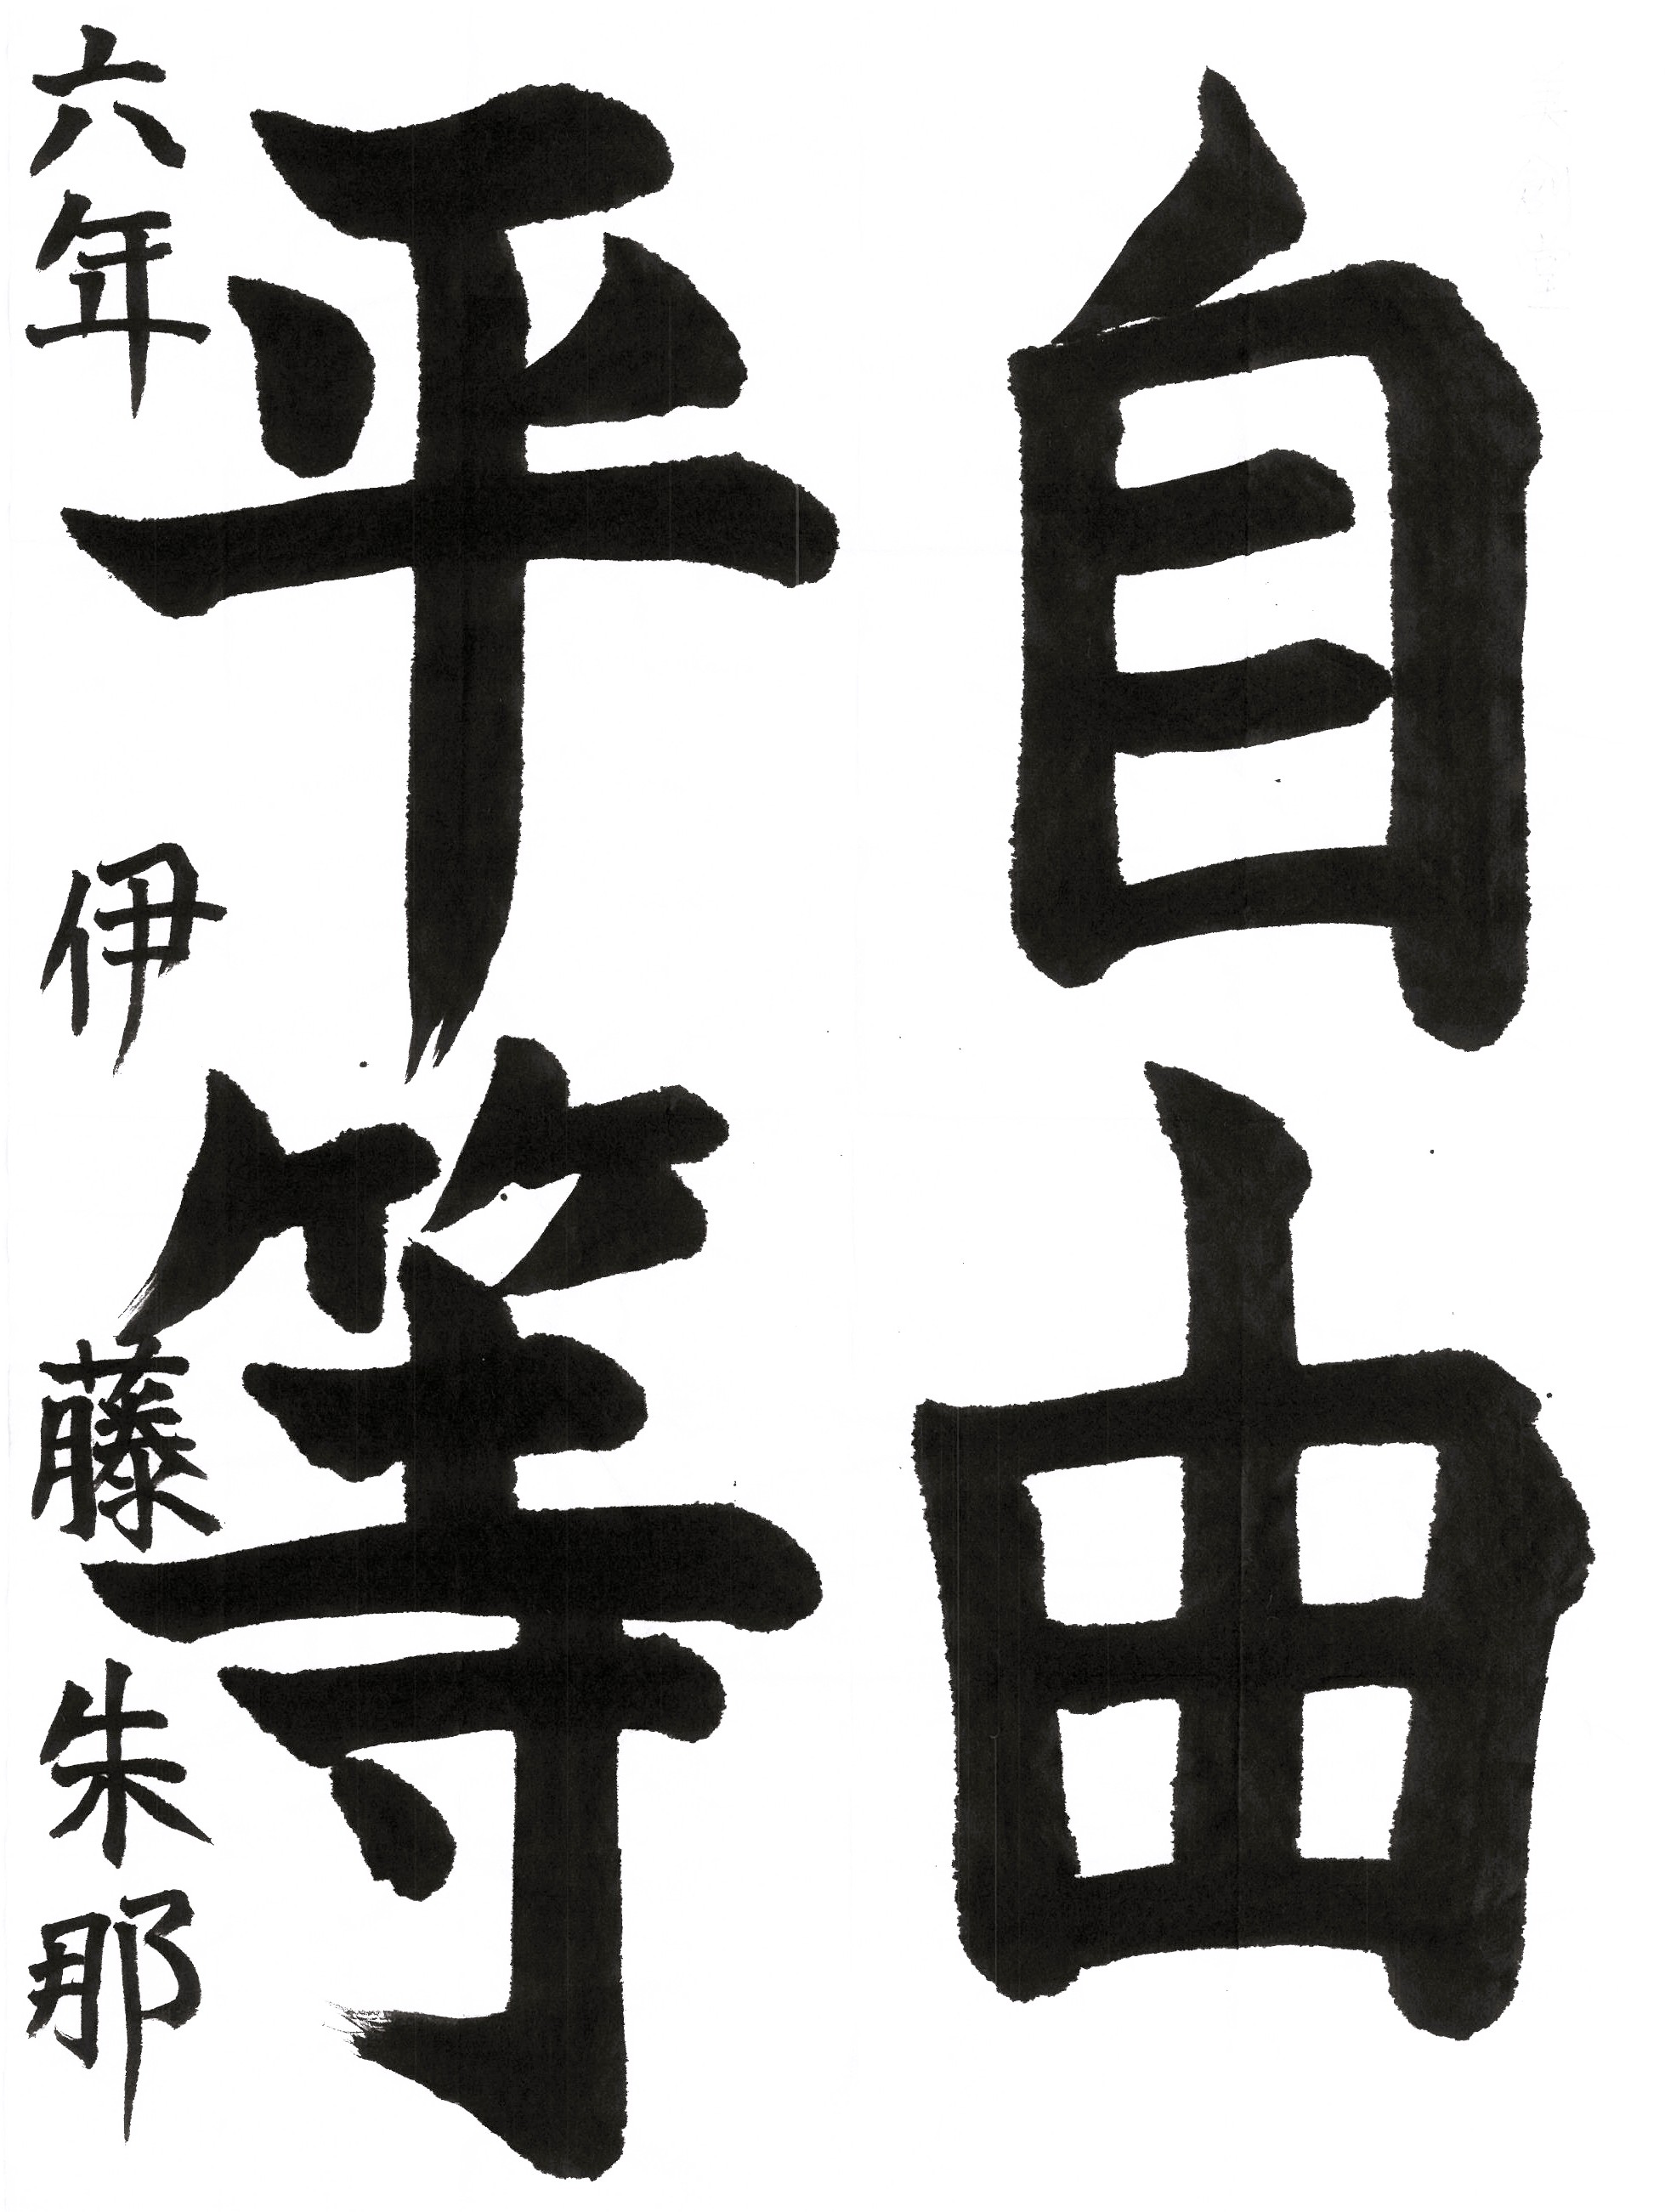 自由
平等
六年 伊藤朱那